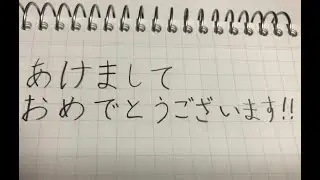 あけまして
おめでとうございます!!